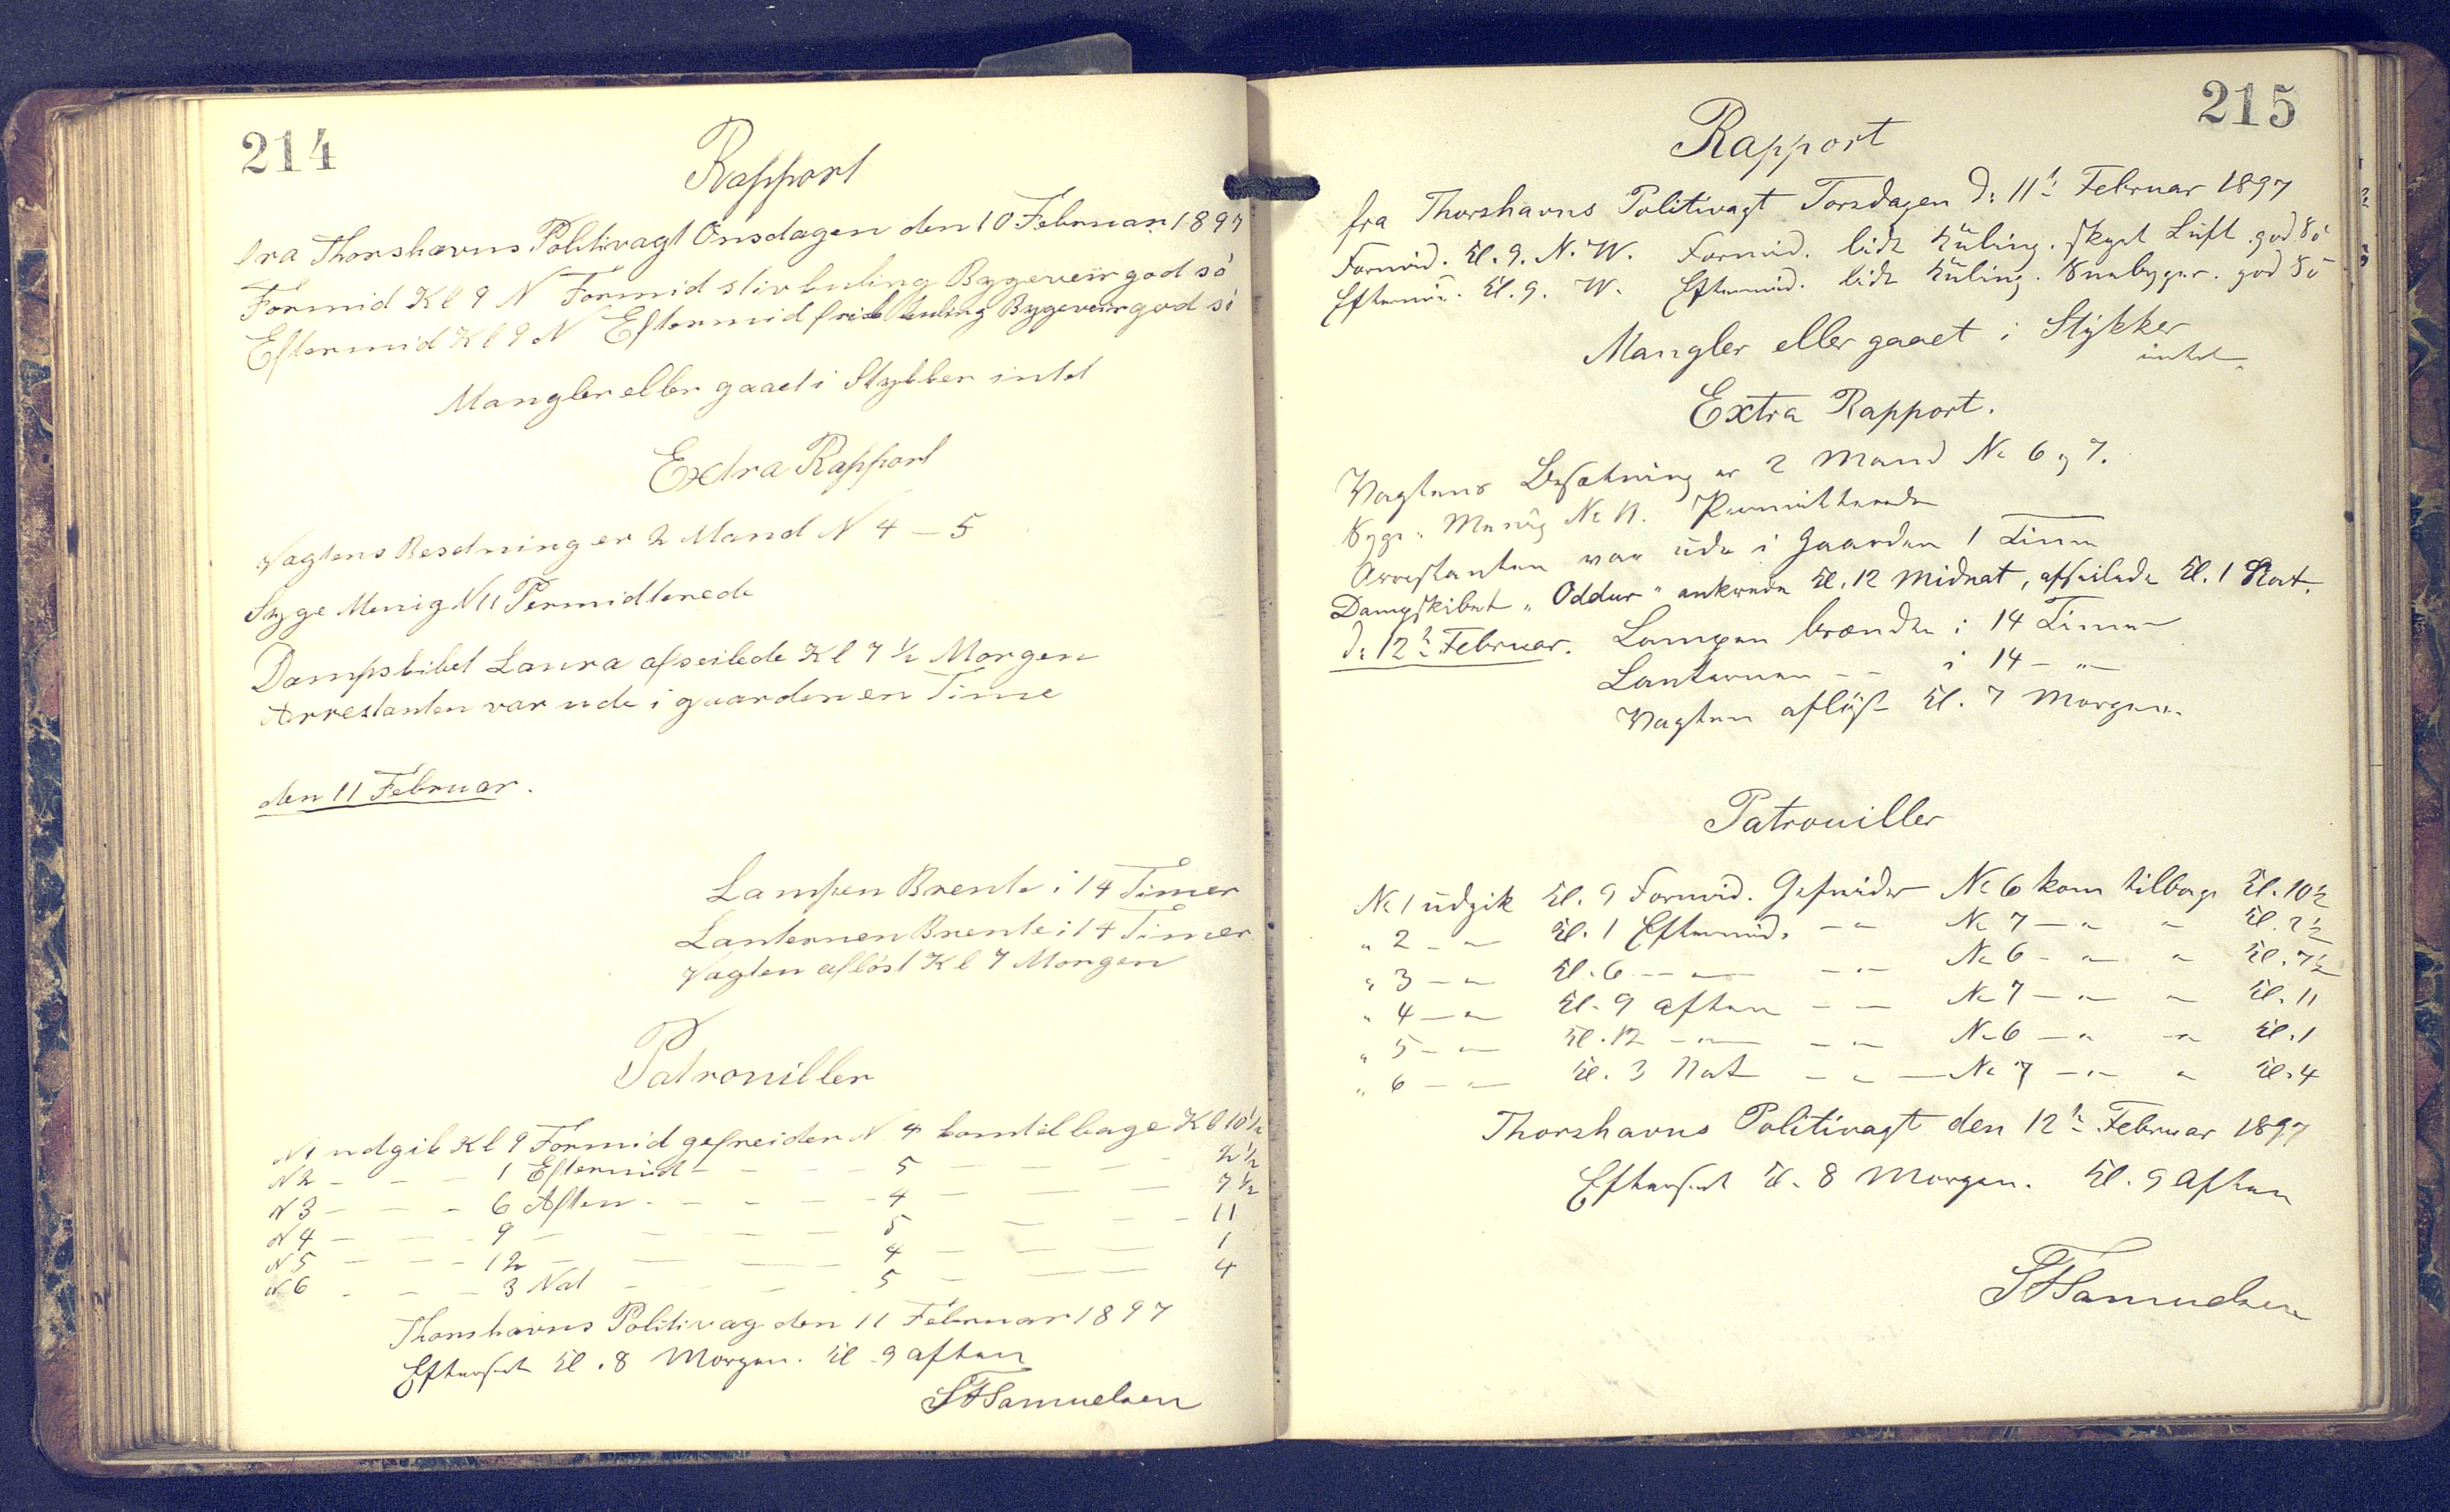 214
Rapport
fra Thorshavns Politivagt Onsdagen den 10 Februar 1897
Formid Kl 9 N Formid stiv kuling Bygeveir god sö
Eftermid Kl 9 N Eftermid frisk kuling Bygeveir god sö
Mangler eller gaaet i Stykker intet
Extra Rapport
Vagtens Besetning er 2 Mand N 4 – 5
Syge Menig N 11 Permidterede
Dampskibet Laura afseilede Kl 7 ½ Morgen
Arrestanten var ude i gaarden en Time
den 11 Februar.
Lampen Brente i 14 Timer
Lanternen Brente i 14 Timer
Vagten aflöst Kl 7 Morgen
Patrouiller
N 1 udgik Kl 9 Formid gefreider N 4 kom tilbage Kl 10 ½
N 2 – – – 1 Eftermid – – – 5 – – – 2 ½
N 3 – – – 6 Aften – – – 4 – – – 7 ½
N 4 – – – 9 – – – – 5 – – – 11
N 5 – – – 12 – – – – 4 – – – 1
N 6 – – – 3 Nat – – – 5 – – – 4
Thorshavns Politivag den 11 Februar 1897
Efterset Kl. 8 Morgen. Kl 9 aften
SFSamuelsen
215
Rapport
fra Thorshavns Politivagt Torsdagen D: 11t Februar 1897
Formid. Kl. 9. N. W. Formid. lidt Kuling. skyet Luft. god Sö
Eftermid. Kl. 9. W. Eftermid. lidt Kuling. Snebyger. god Sö
Mangler eller gaaet i Stykker
intet
Extra Rapport.
Vagtens Besætning er 2 Mand No 6 og 7.
Syge: Menig No 11. Permitterede
Arrestanten var ude i Gaarden 1 Time
Dampskibet "Oddur" ankrede Kl. 12 Midnat, afseilede Kl. 1 Nat.
D: 12t Februar. Lampen brændte i 14 Timer
Lanternen – – i 14 – " –
Vagten aflöst Kl. 7 Morgen.
Patrouiller
No 1 udgik Kl. 9 Formid. Gefreider No 6 kom tilbage Kl. 10½
" 2 – " – Kl. 1 Eftermid. – " – No 7 – " – " Kl. 2½
" 3 – " – Kl. 6 – " – – " – No 6 – " – " Kl. 7½
" 4 – " – Kl. 9 aften – " – No 7 – " – " Kl. 11
" 5 – " – Kl. 12 – " – – " – No 6 – " – " Kl. 1
" 6 – " – Kl. 3 Nat – " – No 7 – " – " Kl. 4
Thorshavns Politivagt den 12t Februar 1897
Efterset Kl. 8 Morgen. Kl. 9 aften
SFSamuelsen